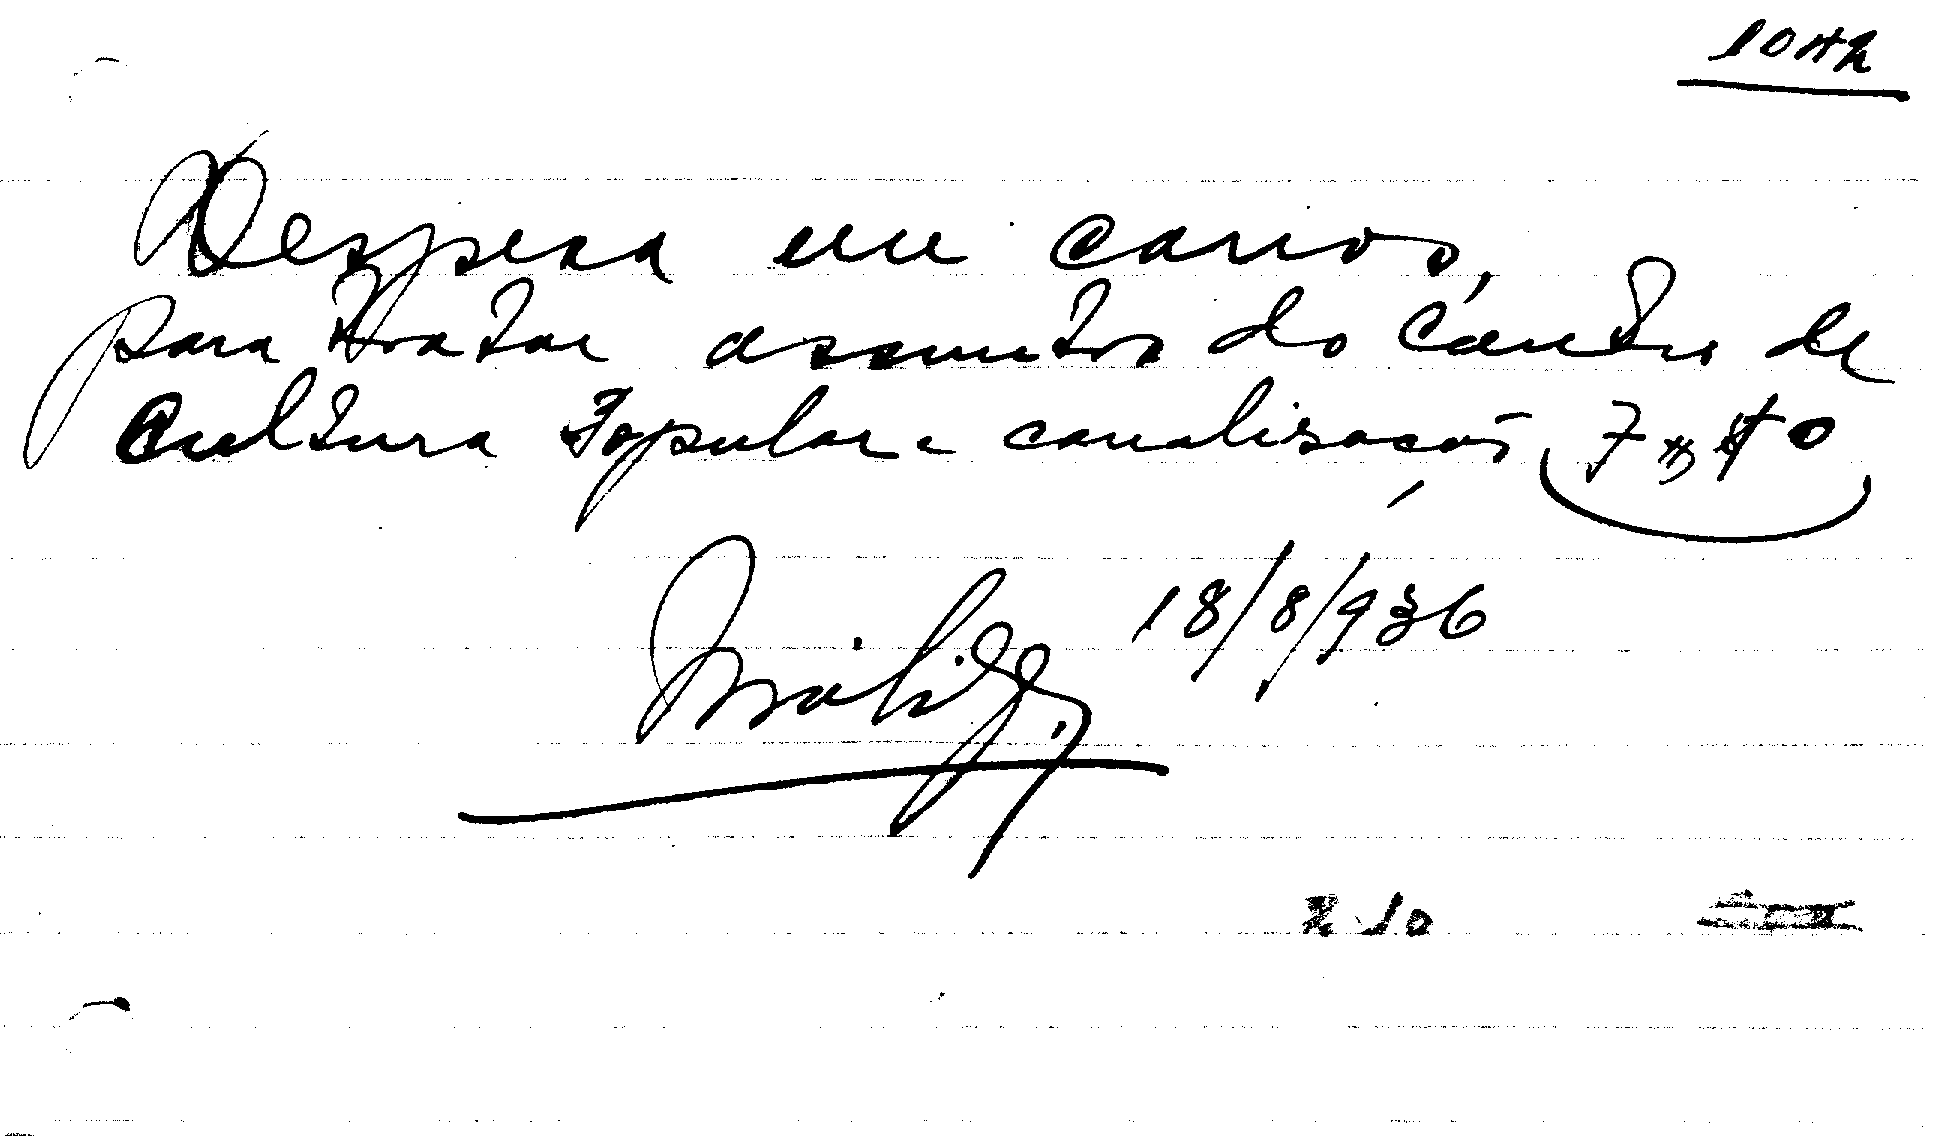 1042
Despesa em carros,
para tratar assuntos do Centro de
Cultura Popular e canalisação
18/8/936
210